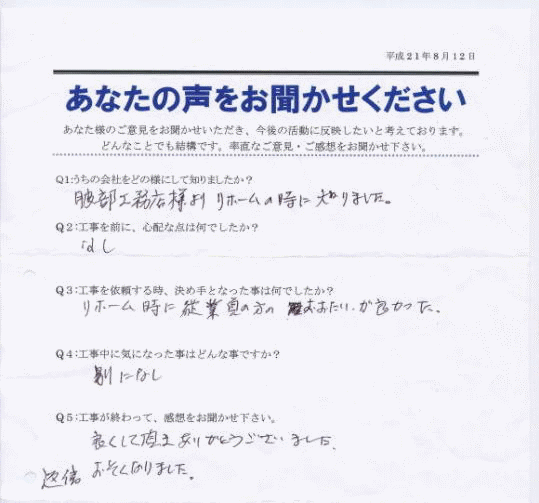 平成21年8月12日
あなたの声をお聞かせください
あなた様のご意見をお聞かせいただき、今後の活動に反映したいと考えております。
どんなことでも結構です。率直なご意見・ご感想をお聞かせ下さい。
Q1:うちの会社をどの様にして知りましたか?
服部工務店様より リホームの時に知りました。
Q2:工事を前に、心配な点は何でしたか?
なし
Q3:工事を依頼する時、決め手となった事は何でしたか?
リホーム時に従業員の方の おおたいが良かった。
Q4:工事中に気になった事はどんな事ですか?
別になし
Q5:工事が終わって、感想をお聞かせ下さい。
良くして頂きありがとうございました。
返信 おそくなりました。